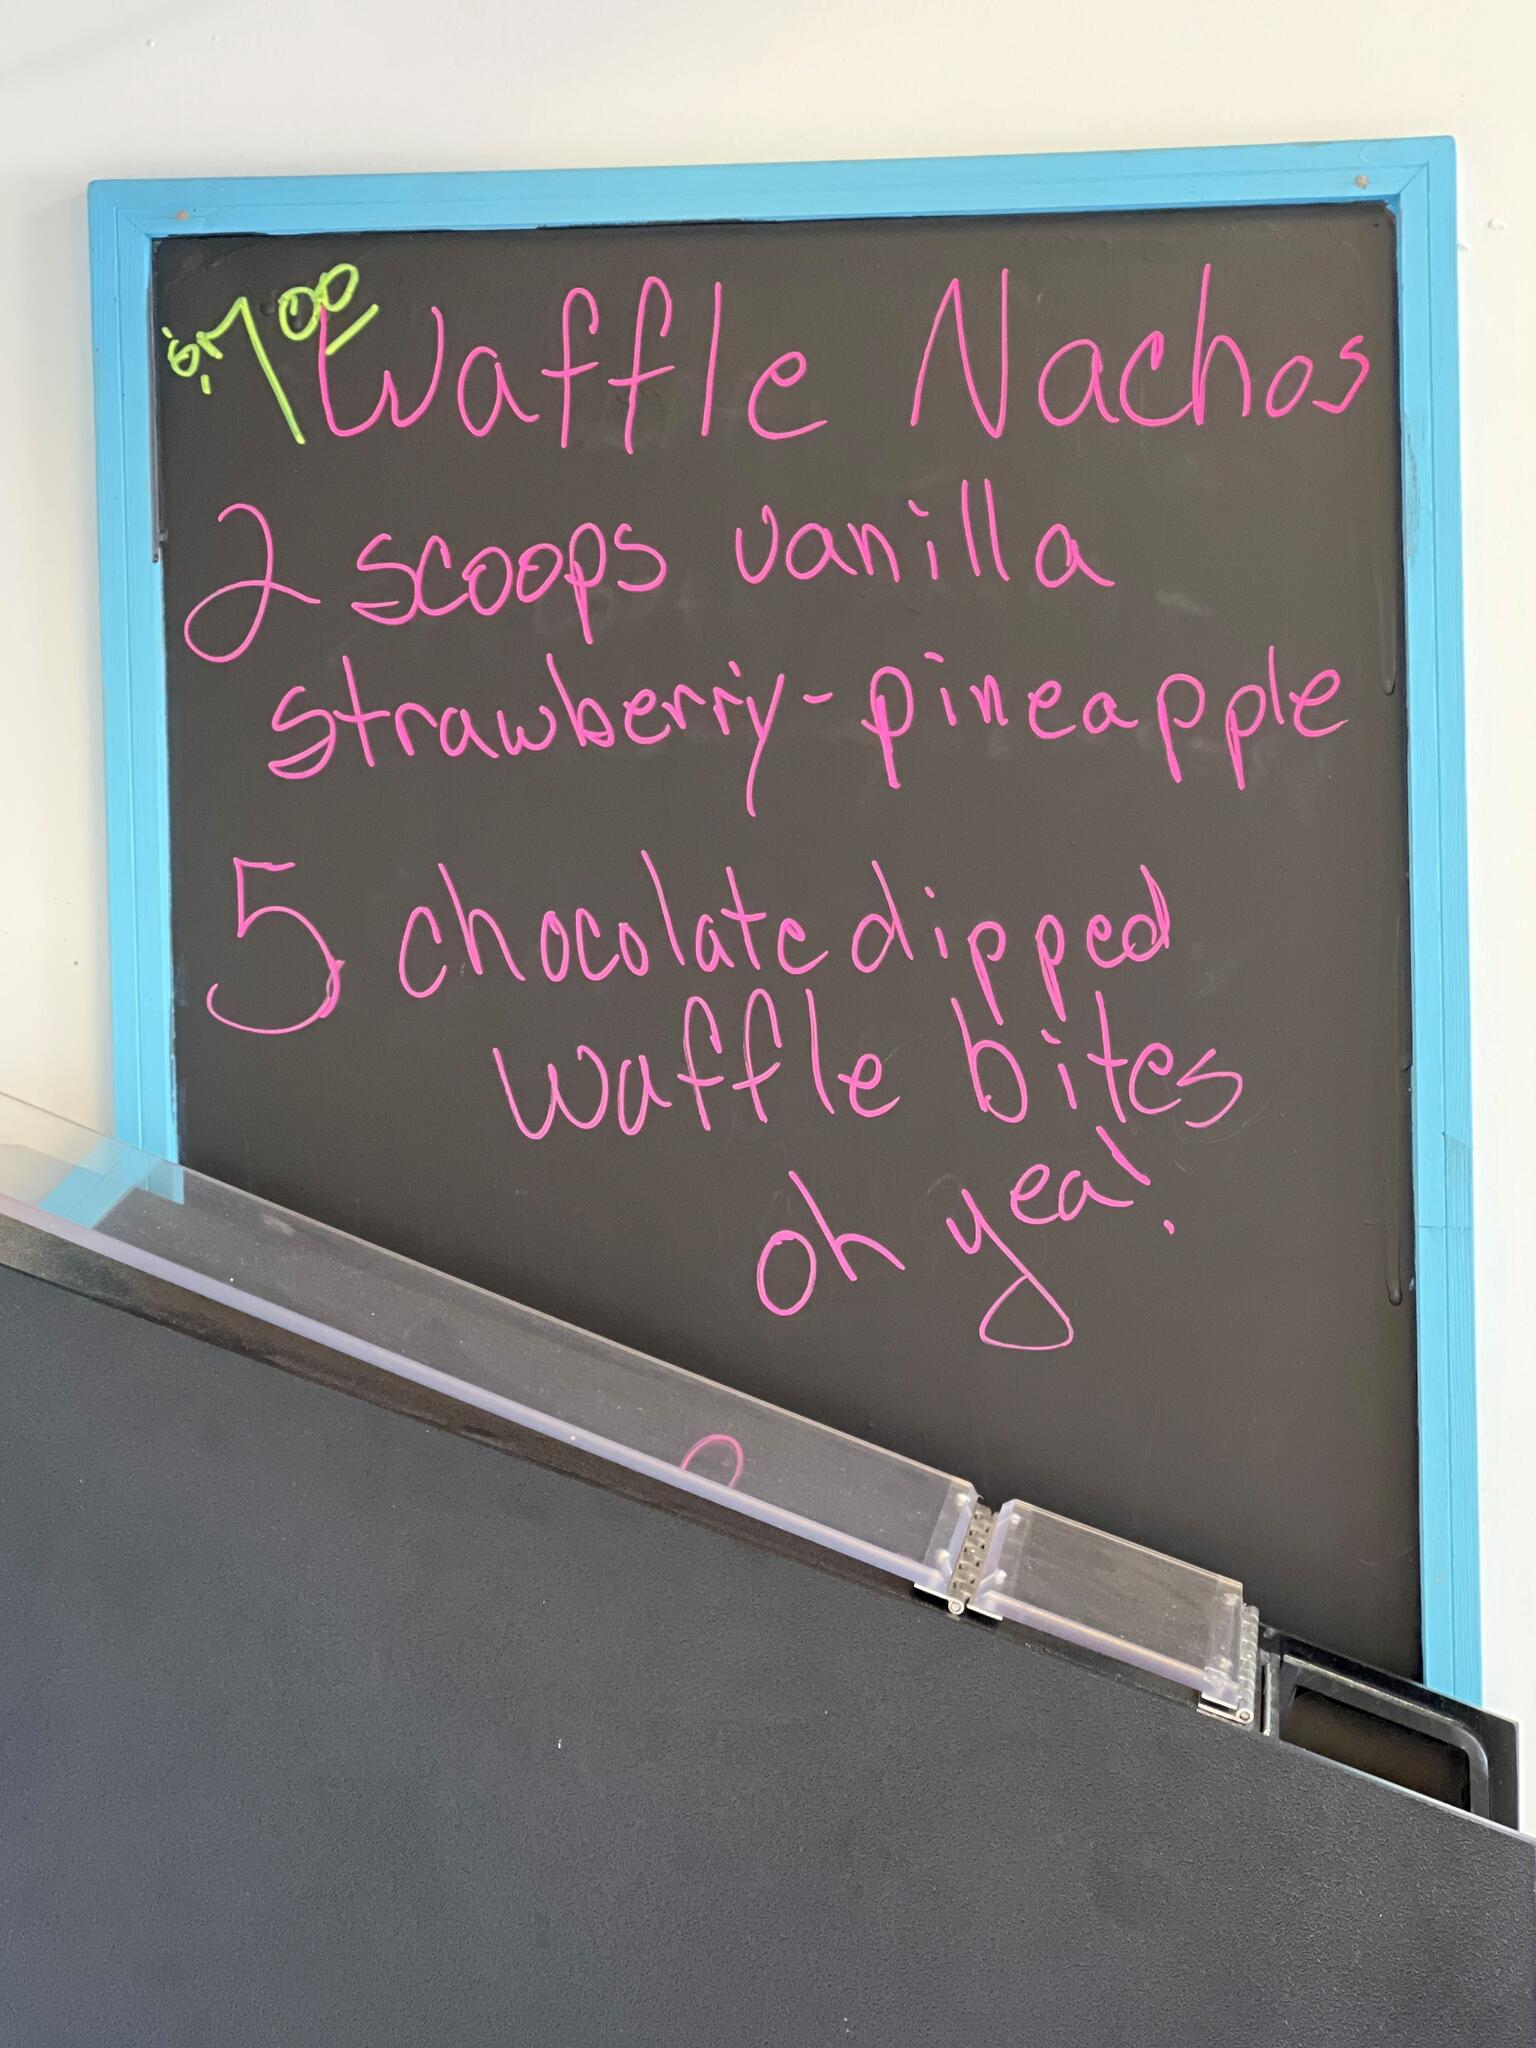 $7.00 Waffle Nachos
2 scoops vanilla
strawberry-pineapple
5 chocolate dipped
waffle bites
oh yea!